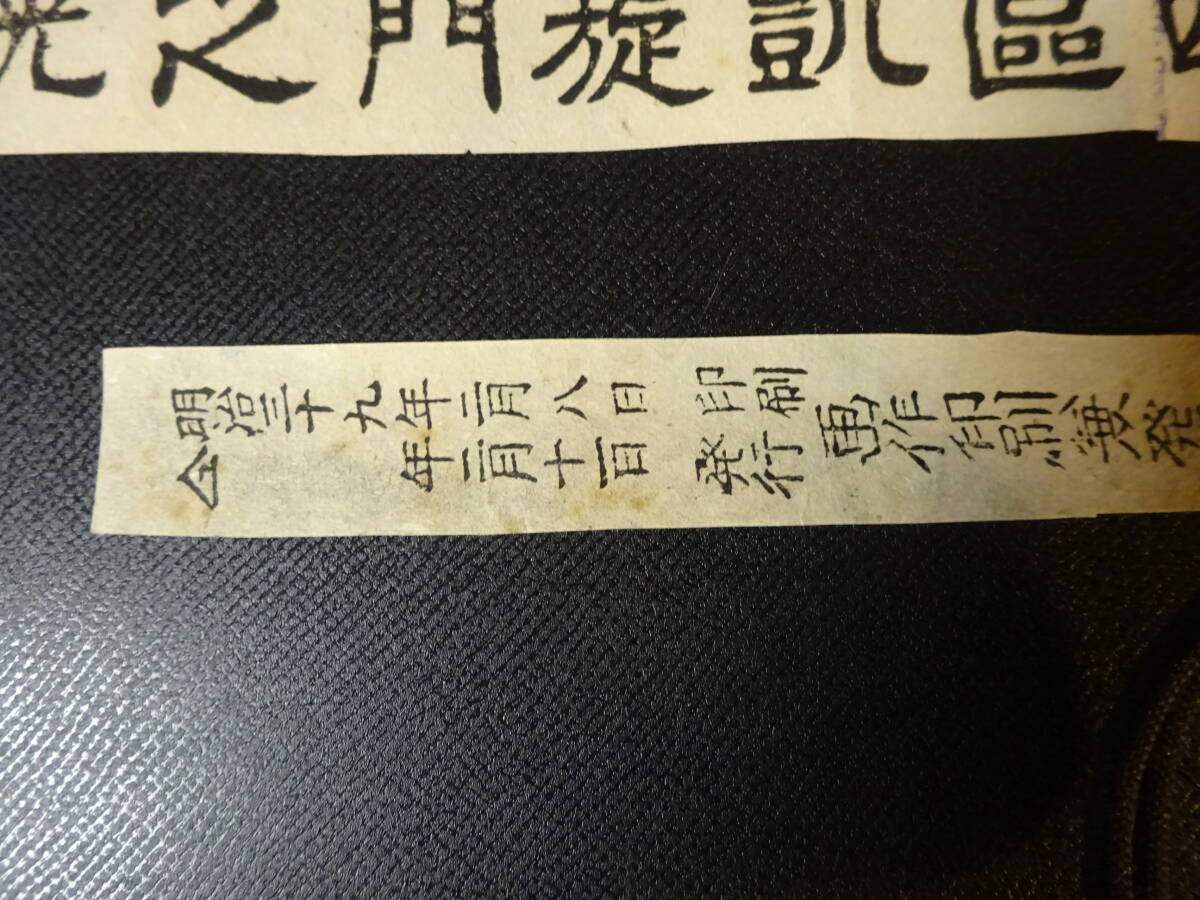 區凱旋門之
明治三十九年二月八日印刷
仝年二月十一日発行
画作印刷兼発